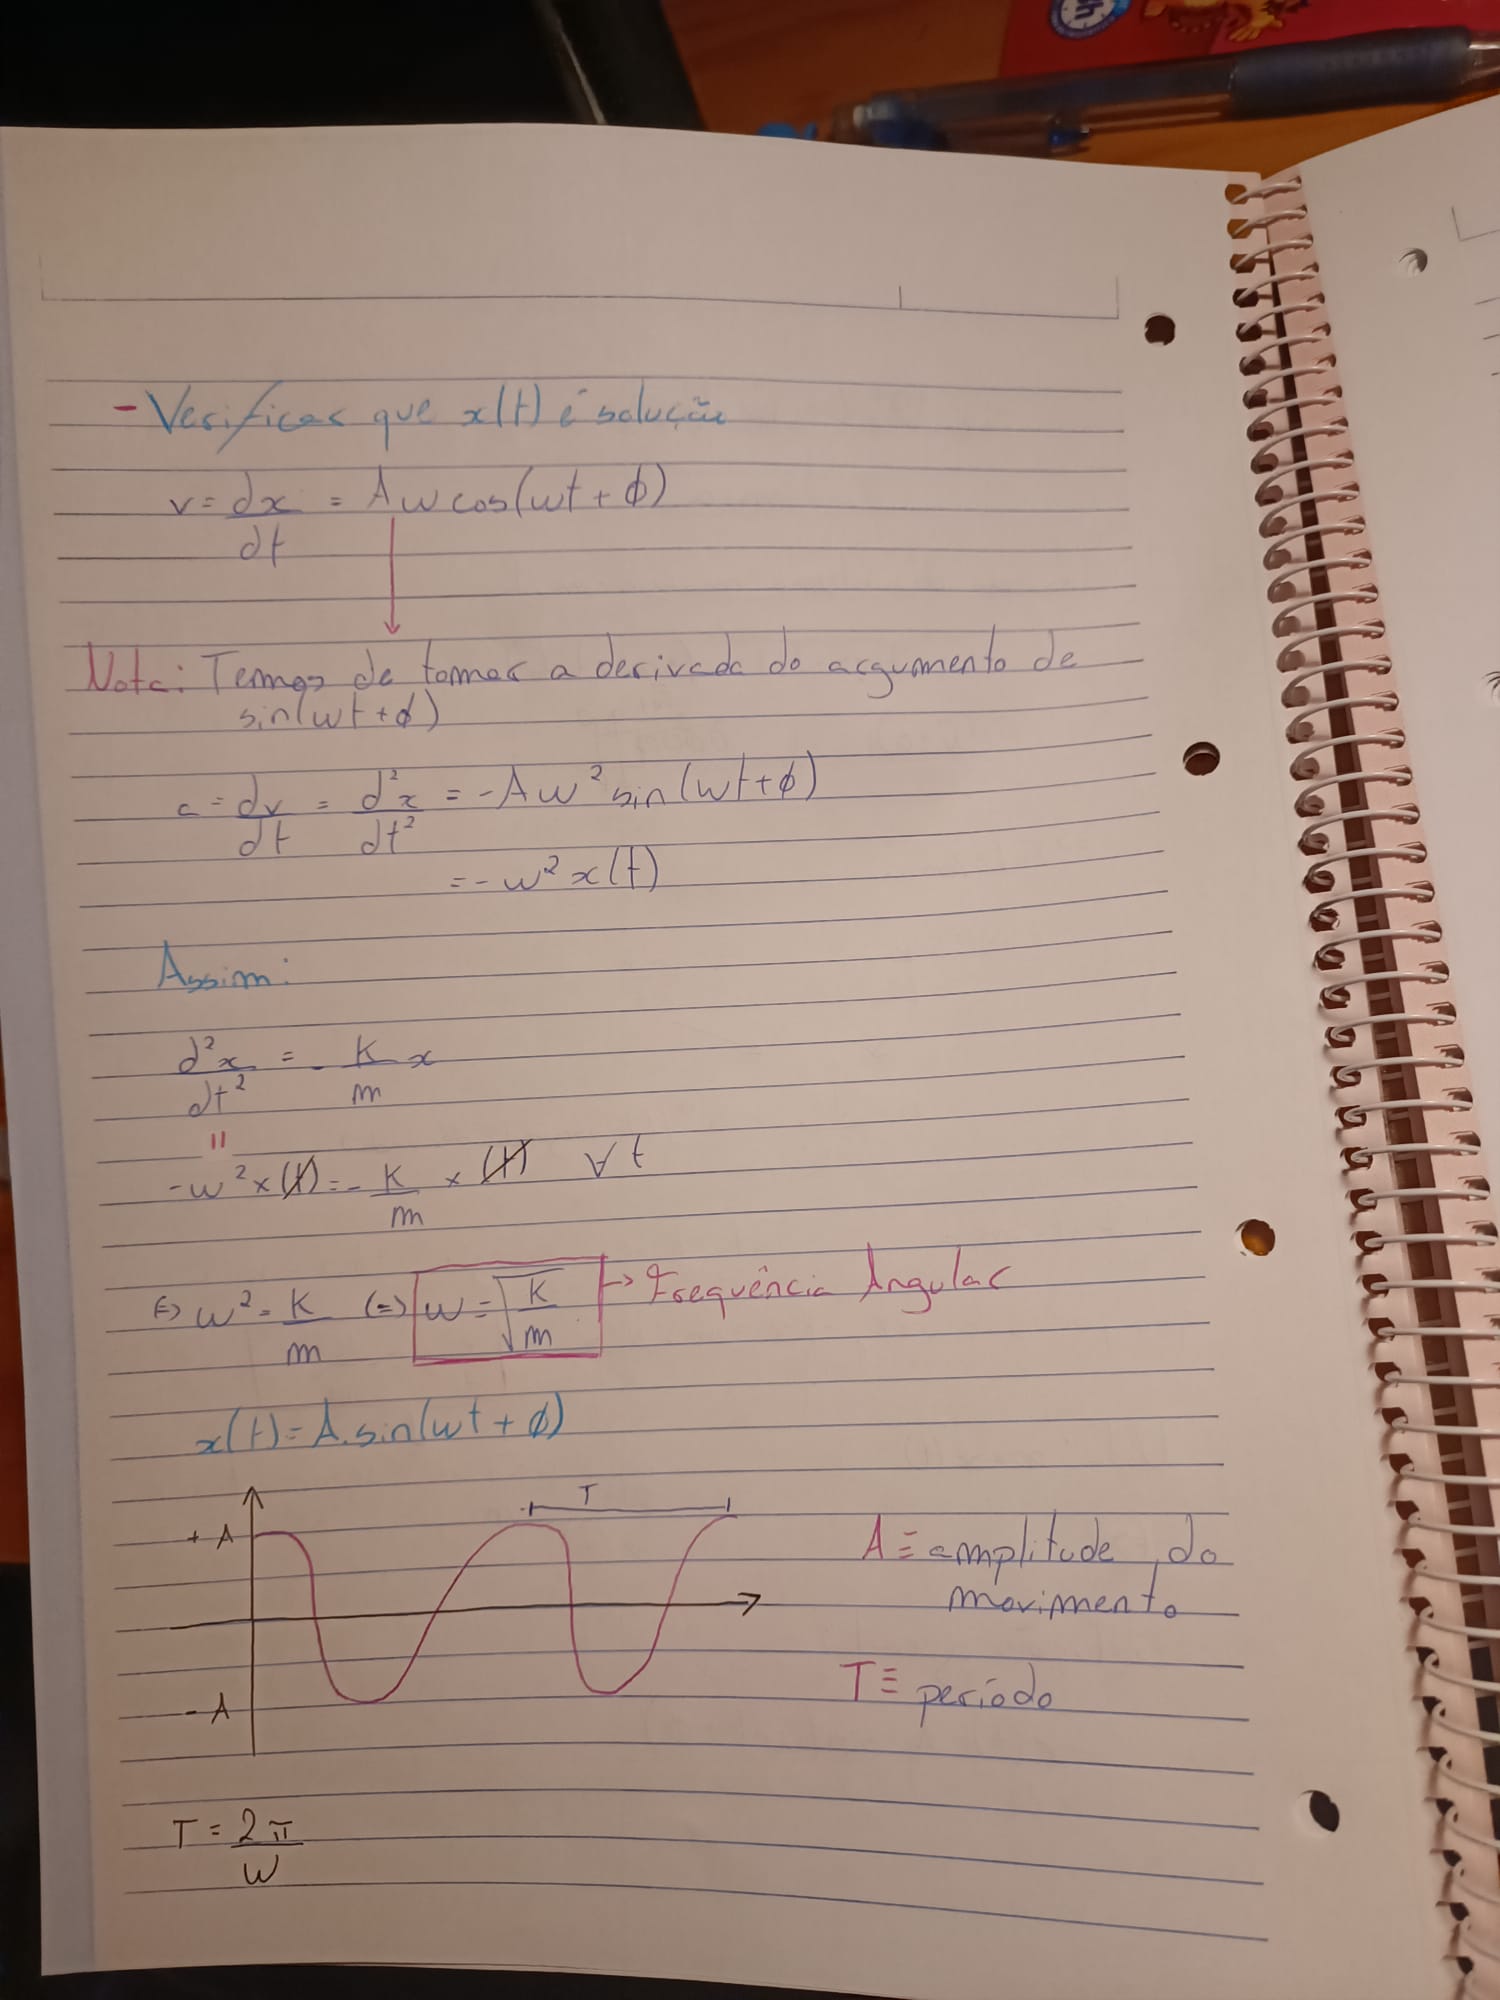 - Verificar que x(t) é solução
v = dx/dt = Aw cos(wt + ϕ)
Nota: Temos de tomar a derivada do argumento de
sin(wt + ϕ)
a = dv/dt = d²x/dt² = -Aw² sin(wt + ϕ)
= -w² x(t)
Assim:
d²x/dt² = - K/m x
=
-w² x(t) = - K/m x (t) ∀ t
(=) w² = K/m (=) w = √(K/m) → Frequência Angular
x(t) = A.sin(wt + ϕ)
T
+ A
A ≡ amplitude do
movimento
- A
T ≡ período
T = 2π/w